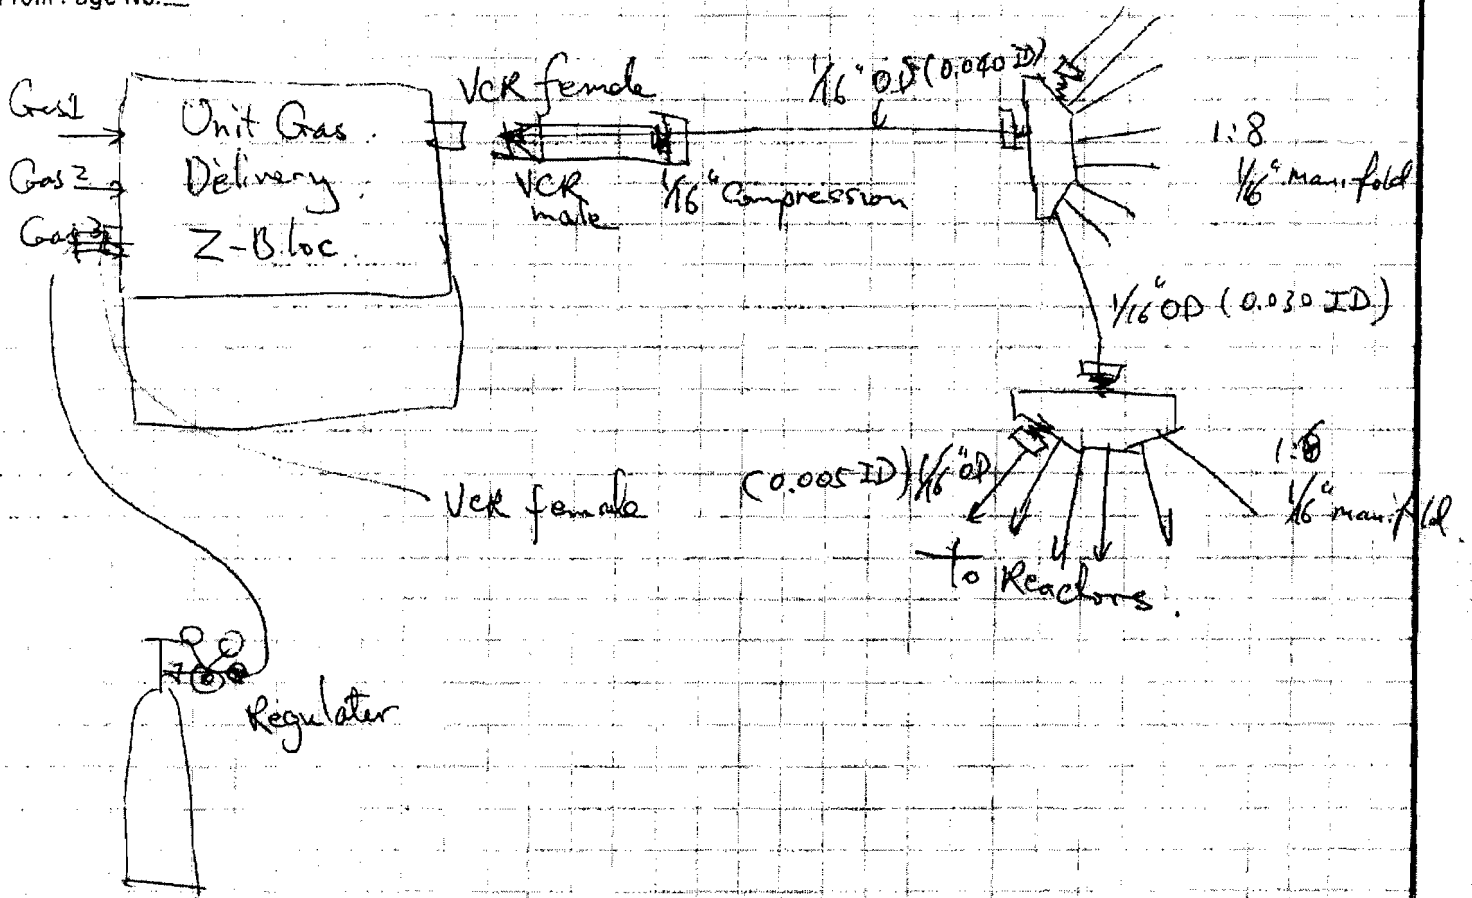 From Page No.
Gas1
Gas2
Gas3
Unit Gas.
Delivery
Z-Bloc.
VCR female
VCR
male
1/16" Compression
1/16" OD (0.040 ID)
1:8
1/16" manifold
1/16" OD (0.030 ID)
(0.005 ID) 1/16" OD
1:6
1/16" manifold.
To Reactors.
VCR female
Regulater